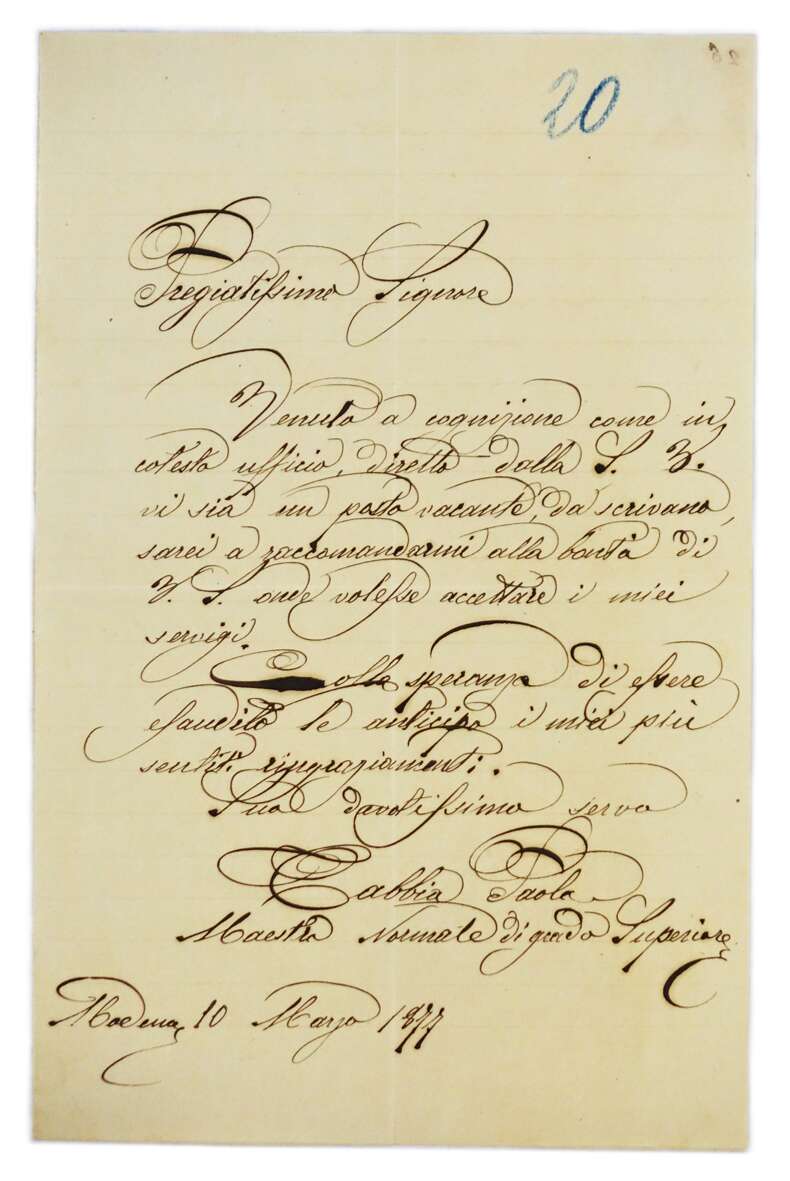 20
Pregiatissimo Signore
Venuto a cognizione come in
cotesto ufficio, diretto dalla S. V.
vi sia un posto vacante, da scrivano,
sarei a raccomandarmi alla bontà di
V. S. onde volesse accettare i miei
servigi.
Colla speranza di essere
esaudito le anticipo i miei più
sentiti ringraziamenti.
Suo devotissimo servo
Cabbia Paolo
Maestro Normale di grado Superiore
Modena 10 Marzo 1877